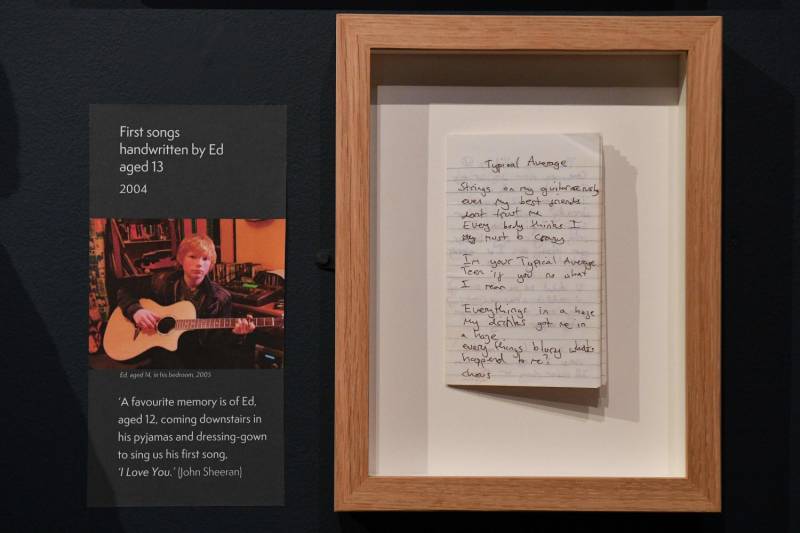 First songs
handwritten by Ed
aged 13
2004
Ed, aged 14, in his bedroom, 2005
‘A favourite memory is of Ed,
aged 12, coming downstairs in
his pyjamas and dressing-gown
to sing us his first song,
‘I Love You.’ (John Sheeran)
Typical Average
Strings on my guitar
even my best friends
dont trust me
Every body thinks I
must b crazy
Im your Typical Average
Teen if you no what
I mean
Everythings in a haze
My drinks got me in
a haze
every things blurry
happend to me?
chorus